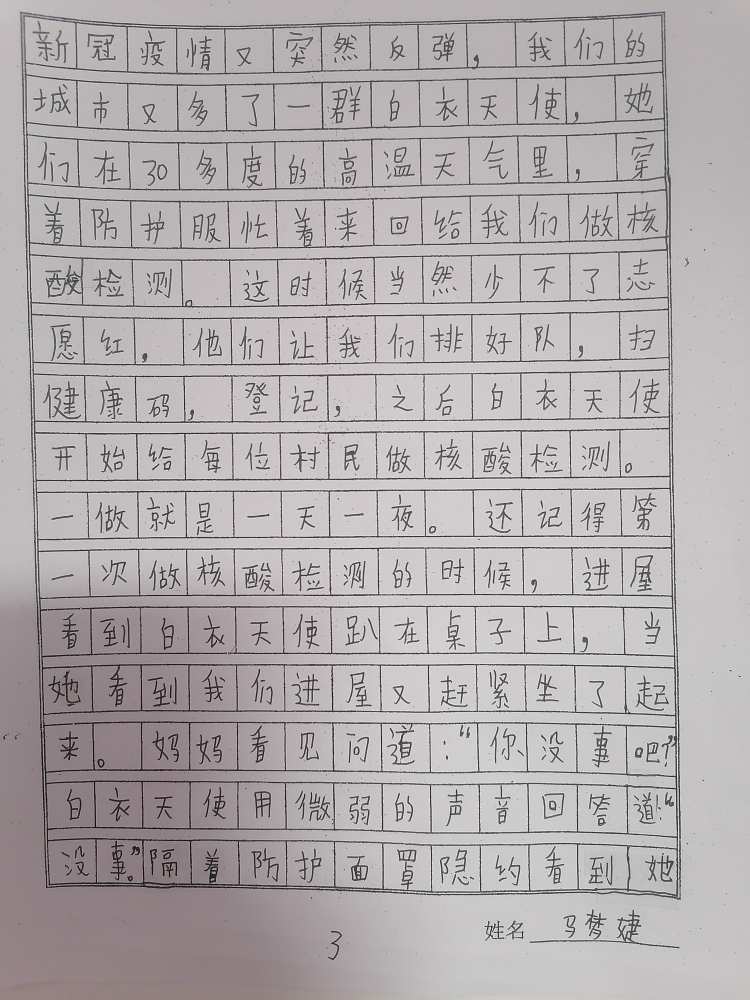 新冠疫情又突然反弹，我们的
城市又多了一群白衣天使，她
们在30多度的高温天气里，穿
着防护服忙着来回给我们做核
酸检测。这时候当然少不了志
愿红，他们让我们排好队，扫
健康码，登记，之后白衣天使
开始给每位村民做核酸检测。
一做就是一天一夜。还记得第
一次做核酸检测的时候，进屋
看到白衣天使趴在桌子上，当
她看到我们进屋又赶紧坐了起
来。妈妈看见问道：“你没事吧？”
白衣天使用微弱的声音回答道：“
没事。”隔着防护面罩隐约看到她
姓名 马梦婕
3